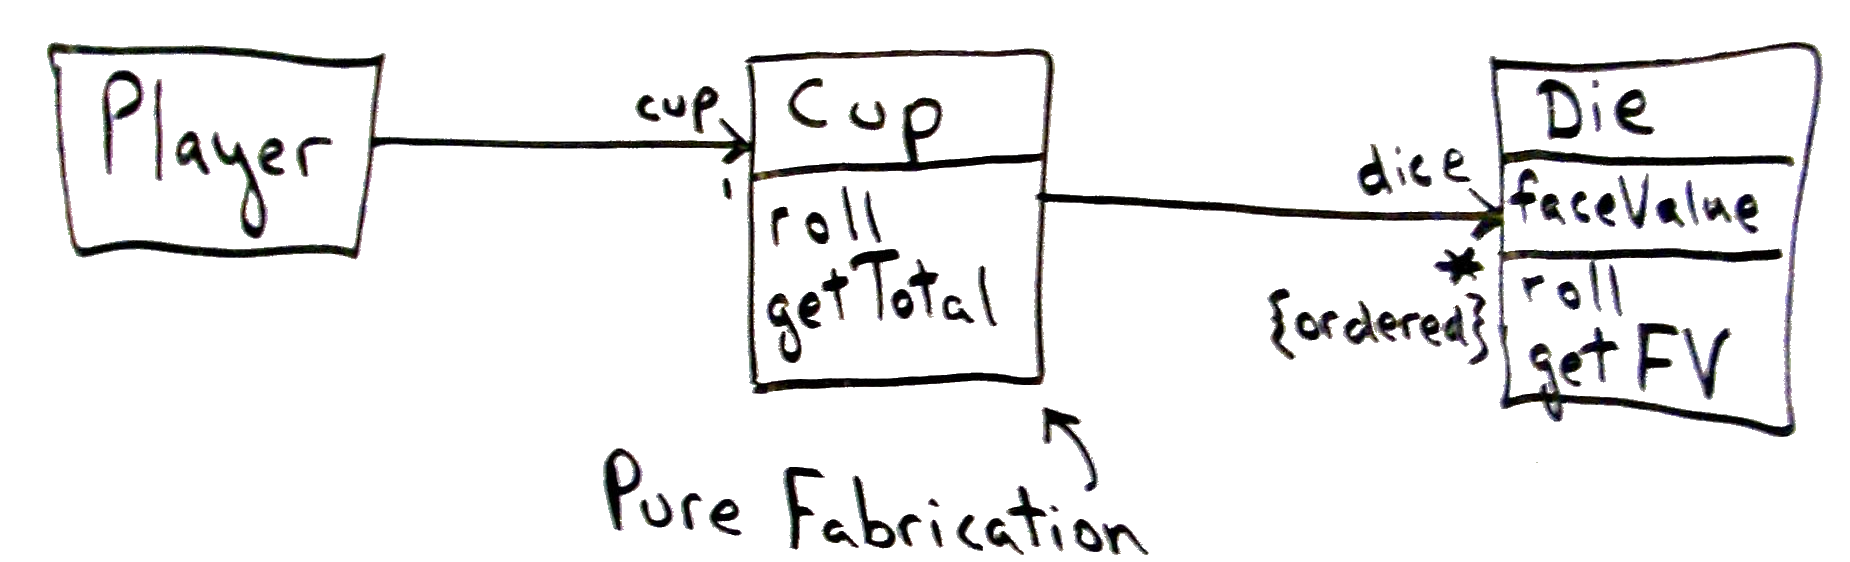 Player
cup
1
Cup
roll
getTotal
dice
*
{ordered}
Die
faceValue
roll
getFV
Pure Fabrication